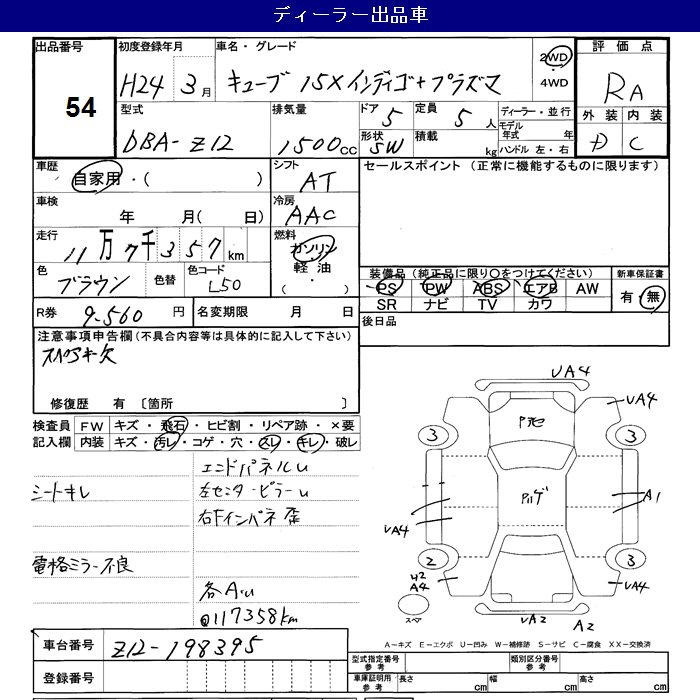 ディーラー出品車
出品番号
54
初度登録年月
H24 3月
車名・グレード
キューブ 15Xインディゴ+プラズマ
2WD
・
4WD
評価点
RA
外装 内装
D C
型式
DBA-Z12
排気量
1500cc
ドア 5
形状 SW
定員 5人
積載 kg
ディーラー・並行
モデル年式 年
ハンドル 左・右
車歴
自家用・( )
シフト
AT
セールスポイント (正常に機能するものに限ります)
車検
年 月( 日)
冷房
AAC
走行
11万7千357km
燃料
ガソリン
軽油
・
( )
色
ブラウン
色替
色コード
L50
装備品 (純正品に限り○をつけてください)
新車保証書
PS PW ABS エアB AW
SR ナビ TV カワ
有・無
R券 9-560円
名変期限 月 日
後日品
注意事項申告欄 (不具合内容等は具体的に記入して下さい)
スペアキー欠
修復歴 有 〔箇所 〕
検査員記入欄
FW キズ・飛石・ヒビ割・リペア跡・×要
内装 キズ・汚レ・コゲ・穴・スレ・キレ・破レ
エンドパネルU
シートキレ
左センターピラーU
右Fインパネ歪
電格ミラー不良
各A・U
@117358km
車台番号 Z12-198395
登録番号
UA4
UA4
3
3
UA4
A1
2
3
U2
A4
UA4
UA2
A2
スペア
A〜キズ E〜エクボ U〜凹み W〜補修跡 S〜サビ C〜腐食 XX〜交換済
型式指定番号 参考
類別区分番号 参考
車庫証明用 参考
長さ cm
幅 cm
高さ cm